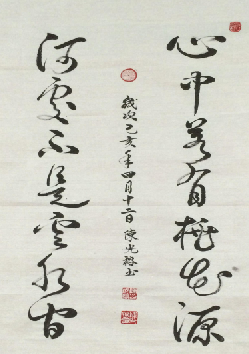 心中若有桃花源
何处不是云水间
歲次己亥年四月十二日陳光